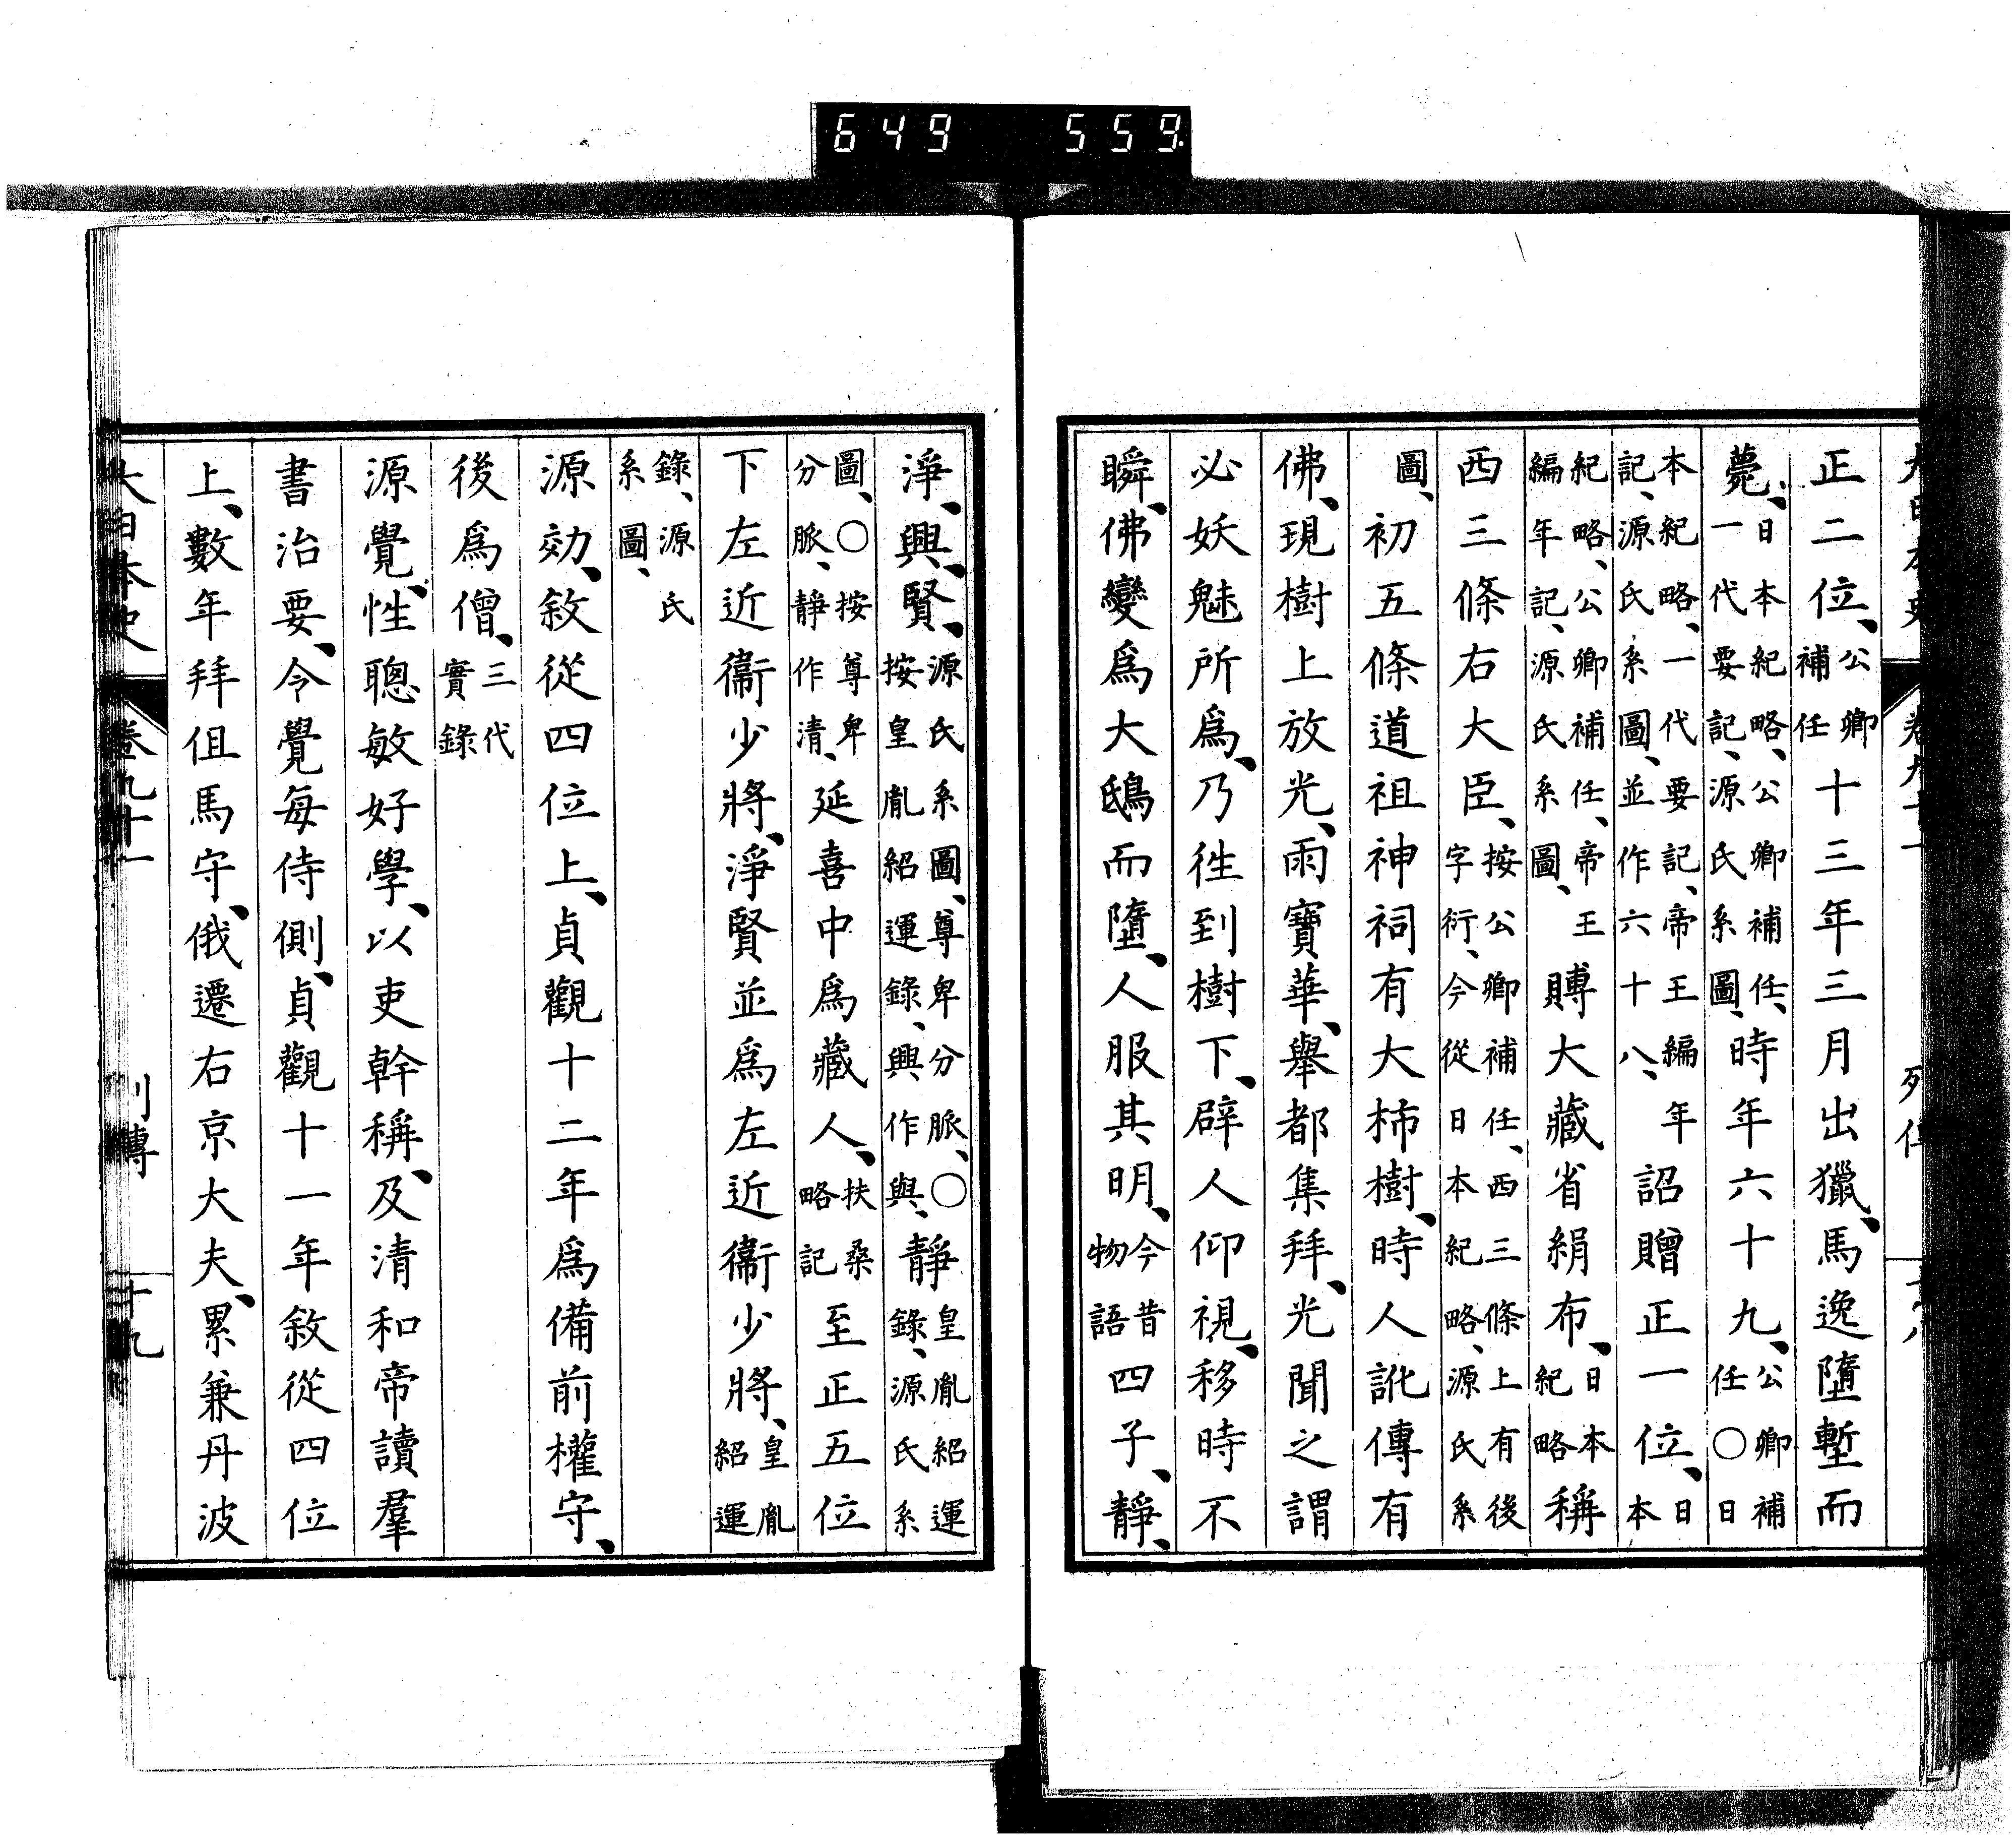 正二位、公卿補任十三年三月出獵、馬逸墮塹而
薨、日本紀略、公卿補任、一代要記、源氏系圖、時年六十九、公卿補任〇日
本紀略、一代要記、帝王編年記、源氏系圖、並作六十八、詔贈正一位、日本
紀略、公卿補任、帝王編年記、源氏系圖、賻大藏省絹布、日本紀略稱
西三條右大臣、按公卿補任、西三條上有後字衍、今從日本紀略、源氏系
圖、初五條道祖神祠有大柿樹、時人訛傳有
佛、現樹上放光、雨寶華、舉都集拜、光聞之謂
必妖魅所爲、乃徃到樹下、辟人仰視、移時不
瞬、佛變爲大鴟而墮、人服其明、今昔物語四子、靜、
淨、興、賢、源氏系圖、尊卑分脈、〇按皇胤紹運錄、興作與、靜皇胤紹運錄、源氏系
圖、〇按尊卑分脈、靜作清、延喜中爲藏人、扶桑略記至正五位
下左近衞少將、淨賢並爲左近衞少將、皇胤紹運
錄、源氏系圖、
源効、敘從四位上、貞觀十二年爲備前權守、
後爲僧、三代實錄
源覺、性聰敏好學、以吏幹稱、及清和帝讀羣
書治要、令覺每侍側、貞觀十一年敘從四位
上、數年拜但馬守、俄遷右京大夫、累兼丹波
大日本史 卷九十一 列傳 十九
649 559